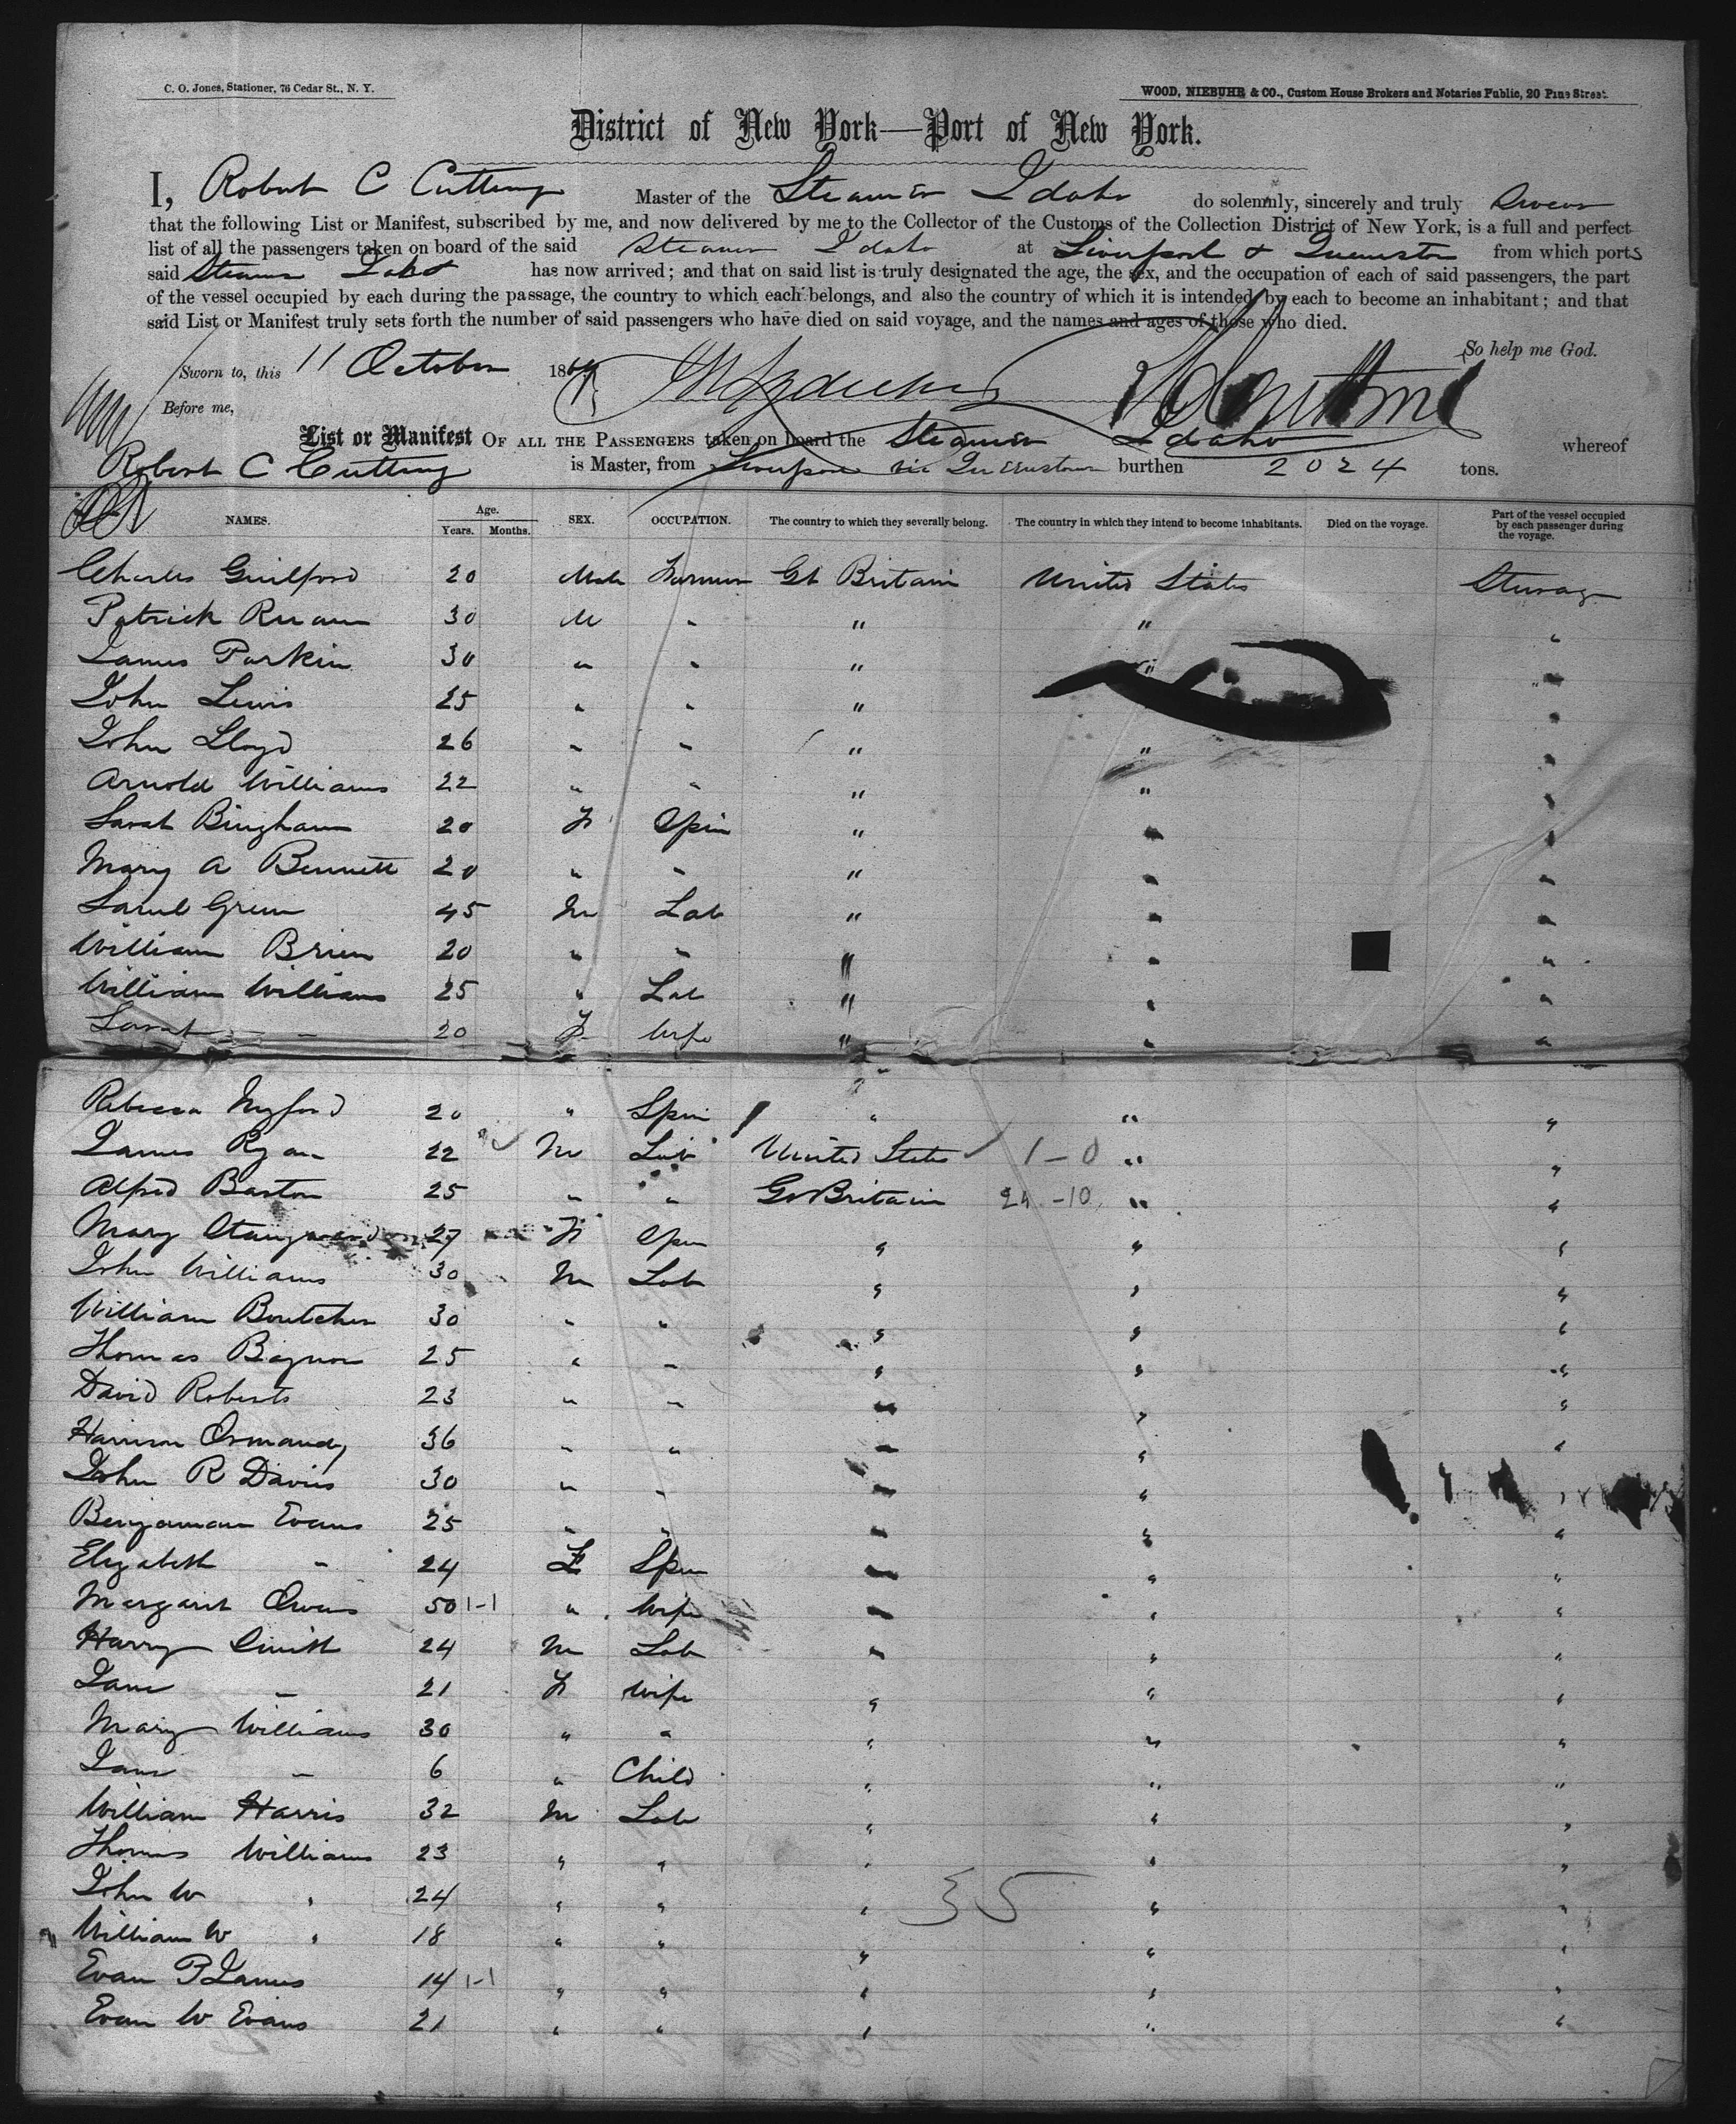 C. O. Jones, Stationer, 76 Cedar St., N. Y.
WOOD, NIEBUHR & CO., Custom House Brokers and Notaries Public, 20 Pine Street.
District of New York—Port of New York.
I, Robert C Cutting Master of the Steamer Idaho do solemnly, sincerely and truly Swear
that the following List or Manifest, subscribed by me, and now delivered by me to the Collector of the Customs of the Collection District of New York, is a full and perfect
list of all the passengers taken on board of the said Steamer Idaho at Liverpool & Queenstown from which ports
said Steamer Idaho has now arrived; and that on said list is truly designated the age, the sex, and the occupation of each of said passengers, the part
of the vessel occupied by each during the passage, the country to which each belongs, and also the country of which it is intended by each to become an inhabitant; and that
said List or Manifest truly sets forth the number of said passengers who have died on said voyage, and the names and ages of those who died.
So help me God.
Sworn to, this 11 October 186
Before me,
List or Manifest OF ALL THE PASSENGERS taken on board the Steamer Idaho whereof
Robert C Cutting is Master, from Liverpool via Queenstown burthen 2024 tons.
NAMES. Age. Years. Months. SEX. OCCUPATION. The country to which they severally belong. The country in which they intend to become inhabitants. Died on the voyage. Part of the vessel occupied by each passenger during the voyage.
Charles Guilford 20 Male Farmer Gt Britain United States Steerage
Patrick 30 M " " " "
James Parkin 30 " " " " "
John Lewis 25 " " " "
John Lloyd 26 " " " " "
Arnold Williams 22 " " " " "
Sarah Bingham 20 F Spin " " "
Mary A Bennett 20 " " " " "
Saml Green 45 M Lab " " "
William Brien 20 " " " " "
William Williams 25 " Lab " " "
Sarah " 20 F Wife " " "
Rebecca 20 " Spin " " "
James Ryan 22 M Lab United States 1-0 " "
Alfred Barton 25 " " Gt Britain 24-10 " "
Mary 27 F Spin " " "
John Williams 30 M Lab " " "
William Boutcher 30 " " " " "
Thomas Bignon 25 " " " " "
David Roberts 23 " " " " "
Harrison Ormandy 36 " " " " "
John R Davies 30 " " " " "
Benjaman Evans 25 " " " " "
Elizabeth " 24 F Spin " " "
Margaret Owens 50 1-1 " Wife " " "
Harry Smith 24 M Lab " " "
Jane " 21 F Wife " " "
Mary Williams 30 " " " " "
Jane " 6 " Child " " "
William Harris 32 M Lab " " "
Thomas Williams 23 " " " " "
John W " 24 " " " " "
35
William W " 18 " " " " "
Evan P James 14 1-1 " " " " "
Evan W Evans 21 " " " " "